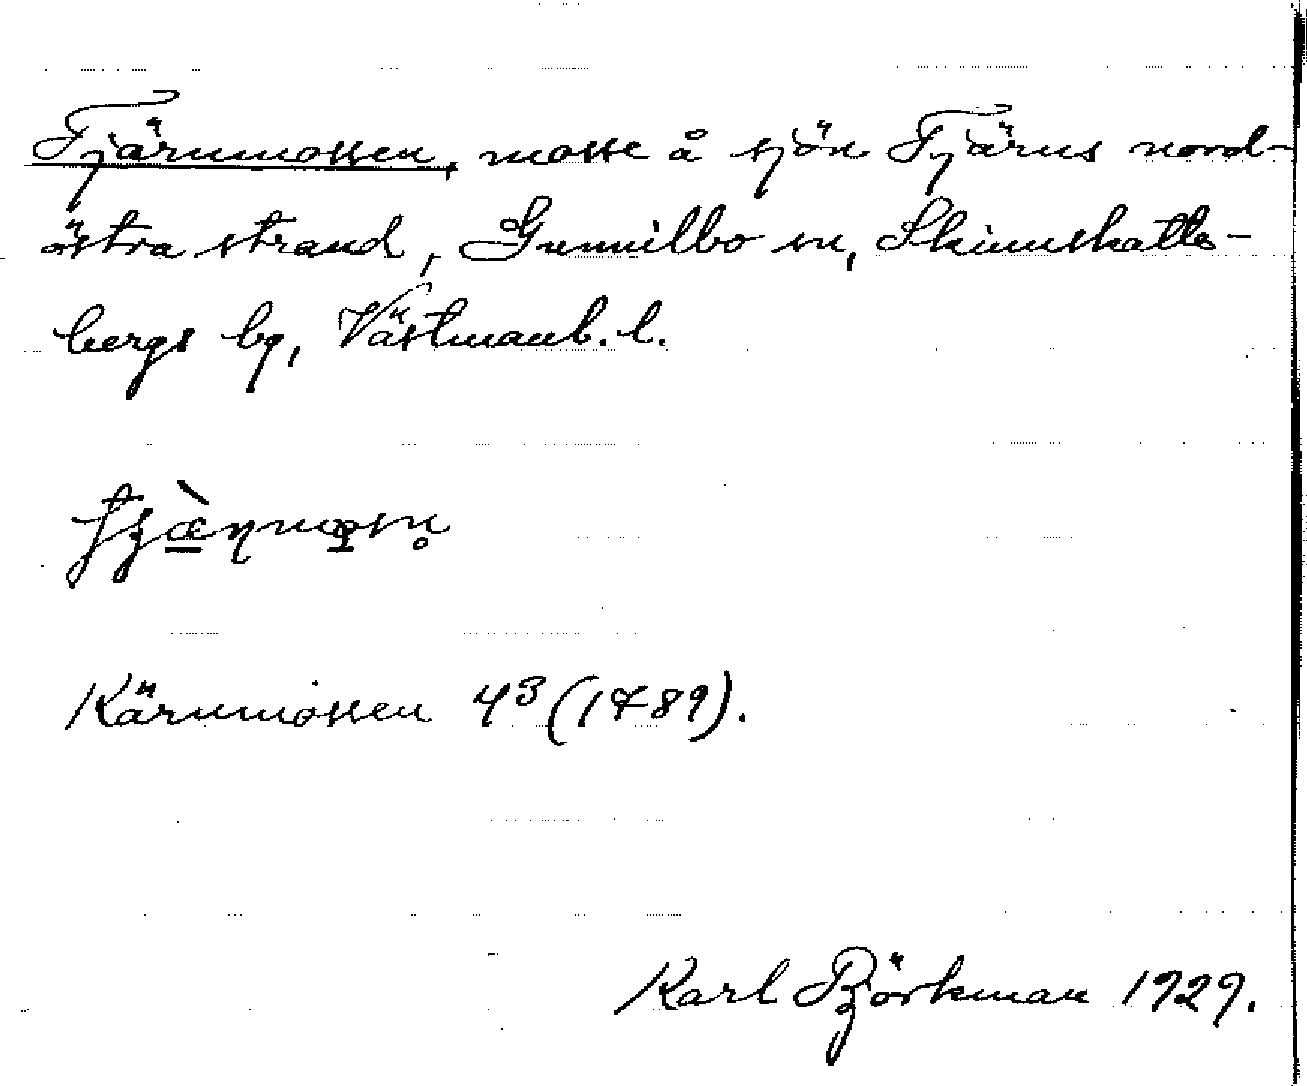 Tjärnmossen, mosse å sjön Tjärns nord-
östra strand, Gunnilbo sn, Skinnskatte-
bergs bg, Västmanl. l.
Kärnmossen 4³ (1789).
Karl Björkman 1929.